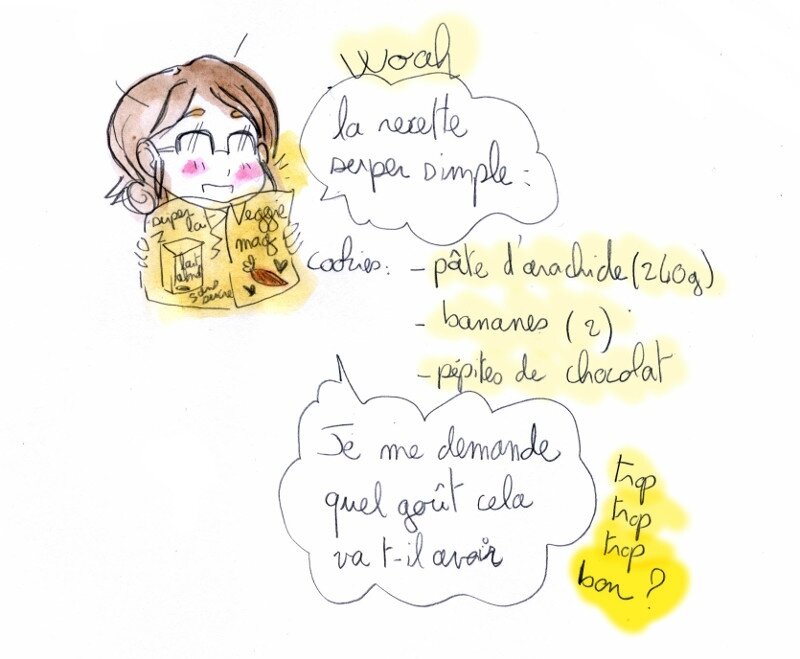 Woah
la recette
super simple :
super
lait
lait
sans
sucre
Veggie
mag
cookies : - pâte d'arachide (240g)
- bananes (2)
- pépites de chocolat
Je me demande
quel goût cela
va t-il avoir
trop
trop
trop
bon ?